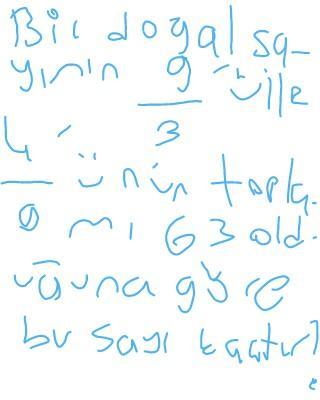 Bir doğal sa-
yının 9/3 'ü ile
4/9 'ünün topla-
mı 63 old-
uğuna göre
bu sayı kaçtır?